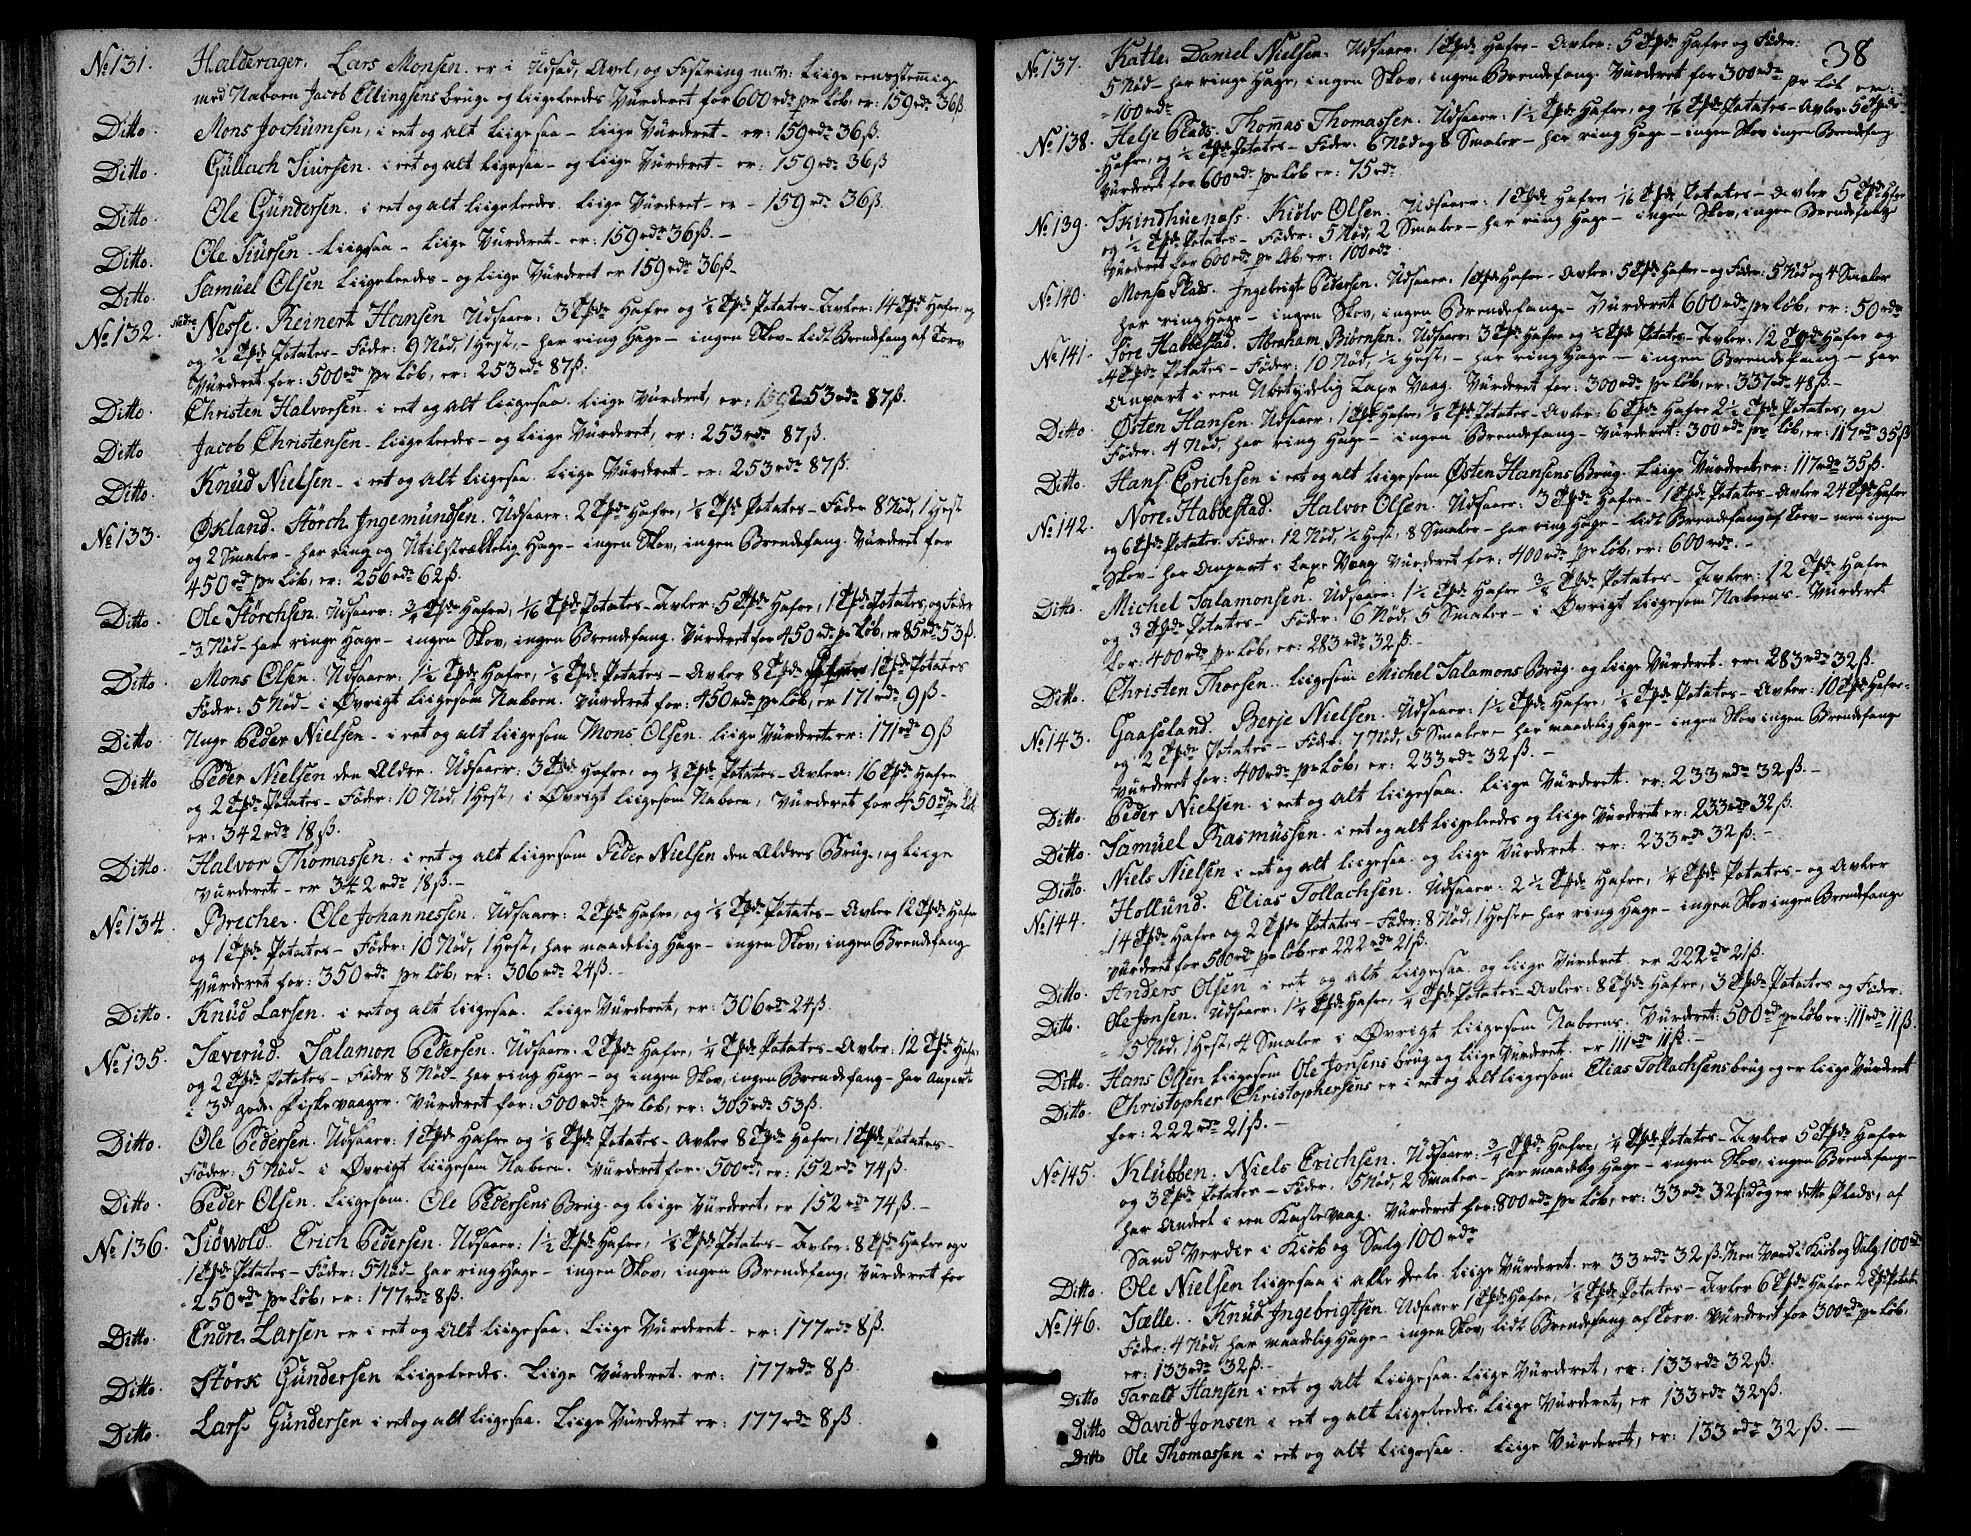 No 131. Halderager. Lars Monsen. er i Udsæd, Avel, og Fostring m: v: liige eenstemmige
med Naboen Jacob Ellingsens brug. og liigeledes Vurderet for 600 rdr pr Løb, er: 159 rdr 36 ß
Ditto. Mons Jochumsen, i eet og alt liigesaa – liige Vurderet – er: 159 rdr 36 ß.
Ditto. Gullach Siursen. i eet og alt liigesaa – og liige Vurderet – er: 159 rdr 36 ß
Ditto. Ole Gundersen. i eet og alt liigeleedes. liige Vurderet – er – 159 rdr 36 ß.
Ditto. Ole Siursen – liigesaa – liige Vurderet – er: 159 rdr 36 ß. –
Ditto. Samuel Olsen liigeleedes – og liige Vurderet er 159 rdr 36 ß –
No 132. Nedre Nesse. Reinert Hansen Udsaaer: 3 Tpdr Hafre og 1/8 Tpd Potates – Avler: 14 Tpdr Hafre og
og 1/2 Tpd Potates – Føder: 9 Nød, 1 Hest, – har ring Hage – ingen Skov – lidt Brendefang af Torv
Vurderet for: 500 rdr pr Løb, er: 253 rdr 87 ß.
Ditto. Christen Halvorsen. i eet og alt liigesaa. liige Vurderet, er: 253 rdr 87 ß.
Ditto Jacob Christensen – liigeleedes – og liige Vurderet, er: 253 rdr 87 ß.
Ditto. Knud Nielsen – i eet og alt liigesaa. liige Vurderet – er: 253 rdr 87 ß.
No 133. Økland. Störch Ingemundsen. Udsaaer: 2 Tpdr Hafre, 1/8 Tpd Potates – Føder 8 Nød, 1 Hest
og 2 Smaler – har ring og Utilstrækkelig Hage – ingen Skov, ingen Brendefang. Vurderet for
450 rdr pr Løb, er: 256 rdr 62 ß.
Ditto. Ole Störchsen. Udsaaer: 3/4 Tpdr Hafre, 1/16 Tpd Potates – Avler: 5 Tpdr Hafre, 1 Tpd Potates, og Føder
3 Nød – har ringe Hage – ingen Skov, ingen Brendefang. Vurderet for 450 rdr pr Løb, er 85 rdr 53 ß.
Ditto. Mons Olsen. Udsaaer: 1 1/2 Tpdr Hafre, 1/8 Tpd Potates – Avler 8 Tpdr 1 Tpd Potates
Føder: 5 Nød – i Øvrigt liigesom Naboen. Vurderet for: 450 rdr pr Løb, er 171 rdr 9 ß –
Ditto. Unge Peder Nielsen – i eet og alt liigesom Mons Olsen. liige Vurderet er: 171 rdr 9 ß
Ditto Peder Nielsen den Ældre. Udsaaer: 3 Tpdr Hafre, og 1/8 Tpd Potates – Avler: 16 Tpdr Hafre
og 2 Tpdr Potates – Føder: 10 Nød, 1 Hest, i Øvrigt liigesom Naboen, Vurderet for 450 rdr pr Løb
er: 342 rdr 18 ß.
Ditto. Halvor Thomassen. i eet og alt liigesom Peder Nielsen den Ældres Brug, og liige
Vurderet – er 342 rdr 18 ß. –
No 134. Brecher. Ole Johannessen. Udsaaer: 2 Tpdr Hafre, og 1/8 Tpd Potates – Avler 12 Tpdr Hafre
og 1 Tpd Potates – Føder: 10 Nød, 1 Hest, har maadelig Hage – ingen Skov, ingen Brendefang
Vurderet for: 350 rdr pr Løb, er: 306 rdr 24 ß. –
Ditto. Knud Larsen. i eet og alt liigesaa. liige Vurderet, er: 306 rdr 24 ß.
No 135. Sæverud. Salamon Pedersen. Udsaaer: 2 Tpdr Hafre, 1/4 Tpd Potates – Avler: 12 Tpdr Hafre,
og 2 Tpdr Potates – Føder 8 Nød – har ring Hage – og ingen Skov, ingen Brendefang – har Anpart
i 3de gode Fiskevaager. Vurderet for: 500 rdr pr Løb, er: 305 rdr 53 ß.
Ditto. Ole Pedersen. Udsaaer: 1 Tpd Hafre og 1/8 Tpd Potates – Avler 8 Tpdr Hafre, 1 Tpd Potates –
Føder: 5 Nød – i Øvrigt liigesom Naboen. Vurderet for 500 rdr, er: 152 rdr 74 ß.
Ditto. Peder Olsen. liigesom. Ole Pedersens Brug. og liige Vurderet, er 152 rdr 74 ß. –
No 136. Sidwold. Erich Pedersen. Udsaaer: 1 1/2 Tpdr Hafre, 1/8 Tpd Potates – Avler: 8 Tpdr Hafre og
1 Tpd Potates – Føder: 5 Nød – har ring Hage – ingen Skov, ingen Brendefang, Vurderet for
250 rdr pr Løb, er: 177 rdr 8 ß.
Ditto. Endre Larsen er i eet og alt liigesaa. liige Vurderet – er: 177 rdr 8 ß.
Ditto. Störk Gundersen liigeleedes. liige Vurderet. er: 177 rdr 8 ß.
Ditto. Lars Gundersen i eet og alt liigesaa. liige Vurderet er: 177 rdr 8 ß.
38
No 137. Katle. Daniel Nielsen. Udsaaer: 1 Tpd Hafre – Avler: 5 Tpdr Hafre og Føder:
5 Nød – har ringe Hage, ingen Skov, ingen Brendefang. Vurderet for 300 rdr pr Løb er:
100 rdr
No 138. Helje Plads. Thomas Thomassen. Udsaaer: 1 1/2 Tpdr Hafre, og 1/16 Tpd Potates – Avler 5 Tpdr
Hafre, og 1/2 Tpd Potates – Føder: 6 Nød og 8 Smaler – har ring Hage – ingen Skov ingen Brendefang
Vurderet for 600 rdr pr Løb er: 75 rdr
No 139. Skindhuenæss. Kiöls Olsen. Udsaaer: 1 Tpd Hafre 1/16 Tpd Potates – avler 5 Tpdr Hafre
og 1/2 Tpd Potates – Føder: 5 Nød, 2 Smaler – har ring Hage – ingen Skov, ingen Brendefang
Vurderet for 600 rdr pr Løb, er: 100 rdr
No 140. Monse Plads. Ingebrigt Pedersen. Udsaaer: 1 Tpd Hafre – Avler: 5 Tpdr Hafre – og Føder: 5 Nød og 4 Smaler
har ring Hage – ingen Skov, ingen Brendefang – Vurderet 600 rdr pr Løb, er: 50 rdr
No 141. Søre Habbestad. Abraham Biörnsen. Udsaaer: 3 Tpdr Hafre og 1/2 Tpd Potates – Avler: 12 Tpdr Hafre og
4 Tpdr Potates – Føder: 10 Nød, 1/2 Hest, – har ring Hage – ingen Brendefang – har
Anpart i een Ubetydelig Laxe Vaag. Vurderet for: 300 rdr pr Løb, er: 337 rdr 48 ß. –
Ditto. Østen Hansen. Udsaaer: 1 Tpd Hafre, 1/8 Tpd Potates – Avler: 6 Tpdr Hafre 2 1/2 Tpdr Potates, og
Føder: 4 Nød, har ring Hage – ingen Brendefang – Vurderet: 300 rdr pr Løb, er: 117 rdr 35 ß
Ditto. Hans Erichsen i eet og alt liigesom Østen Hansens Brug. liige Vurderet, er: 117 rdr 35 ß.
No 142. Nore Habbestad. Halvor Olsen. Udsaaer: 3 Tpdr Hafre – 1 Tpd Potates – Avler 24 Tpdr Hafre
og 6 Tpdr Potates. Føder: 12 Nød, 1/2 Hest, 8 Smaler – har ring Hage – lidt Brendefang af Torv – men ingen
Skov – har Anpart i Laxe Vaag Vurderet for: 400 rdr pr Løb, er: 600 rdr. –
Ditto. Michel Salamonsen. Udsaaer: 1 1/2 Tpdr Hafre 3/8 Tpd Potates – Avler: 12 Tpdr Hafre
og 3 Tpdr Potates – Føder: 6 Nød, 5 Smaler – i Øvrigt liigesom Naboens – Vurderet
for: 400 rdr pr Løb, er: 283 rdr 32 ß. –
Ditto. Christen Thorsen. liigesom Michel Salamons Brug. og liige Vurderet. er: 283 rdr 32 ß.
No 143. Gaaseland. Berje Nielsen. Udsaaer: 1 1/2 Tpdr Hafre, 1/8 Tpd Potates – Avler: 10 Tpdr Hafre –
og 2 Tpdr Potates – Føder: 7 Nød, 5 Smaler – har maadelig Hage – ingen Skov ingen Brendefang
Vurderet for: 400 rdr pr Løb, er: 233 rdr 32 ß. –
Ditto. Peder Nielsen. i eet og alt liigesaa. liige Vurderet. er: 233 rdr 32 ß. –
Ditto. Samuel Rasmussen. i eet og alt liigeleedes og liige Vurderet er: 233 rdr 32 ß.
Ditto. Niels Nielsen i eet og alt liigesaa. og liige Vurderet. er: 233 rdr 32 ß. –
No 144. Hollund. Elias Tollachsen. Udsaaer: 2 1/2 Tpdr Hafre, 1/4 Tpd Potates – og Avler
14 Tpdr Hafre og 2 Tpdr Potates – Føder: 8 Nød, 1 Hest – har ring Hage – ingen Skov ingen Brendefang
Vurderet for 500 rdr pr Løb er 222 rdr 21 ß.
Ditto. Anders Olsen i eet og alt liigesaa. og liige Vurderet. er 222 rdr 21 ß.
Ditto. Ole Jonsen. Udsaaer: 1 1/4 Tpdr Hafre, 1/4 Tpd Potates – Avler: 8 Tpdr Hafre, 3 Tpdr Potates og Føder.
5 Nød, 1 Hest, 4 Smaler i Øvrigt liigesom Naboens. Vurderet: 500 rdr pr Løb er: 111 rdr 11 ß.
Ditto. Hans Olsen liigesom Ole Jonsens brug og liige Vurderet. er 111 rdr 11 ß. –
Ditto. Christopher Christophersens er i eet og alt liigesom Elias Tollachsens brug og er liige Vurderet
for: 222 rdr 21 ß. –
No 145. Klubben. Niels Erichsen. Udsaaer: 3/4 Tpdr Hafre, 1/4 Tpd Potates – Avler 5 Tpdr Hafre
og 3 Tpdr Potates – Føder. 5 Nød, 2 Smaler – har maadelig Hage – ingen Skov, ingen Brendefang –
har Andeel i een Kastevaag. Vurderet for: 800 rdr pr Løb, er: 33 rdr 32 ß. dog er dette Plads, af
Sand Verdie i Kiöb og Salg 100 rdr
Ditto. Ole Nielsen liigesaa i alle deele. liige Vurderet. er 33 rdr 32 ß. Men Værd i Kiöb og Salg 100 rdr
No 146. Tælle. Knud Ingebrigtsen. Udsaaer 1 Tpd Hafre, 1/8 Tpd Potates – Avler 6 Tpdr Hafre 2 Tpdr Potates
Føder: 4 Nød, har maadelig Hage – ingen Skov, lidt Brendefang af Torv. Vurderet for 300 rdr pr Løb,
er: 133 rdr 32 ß. –
Ditto Taralt Hansen i eet og alt liigesaa. liige Vurderet, er: 133 rdr 32 ß.
Ditto David Jonsen i eet og alt liigeleedes. liige Vurderet, er 133 rdr 32 ß.
Ditto Ole Thomassen i eet og alt liigesaa. liige Vurderet, er: 133 rdr 32 ß. –